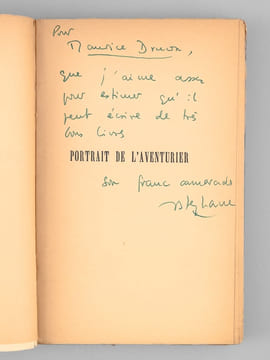 Pour
Maurice Druon,
que j'aime assez
pour estimer qu'il
peut écrire de très
bons livres
PORTRAIT DE L'AVENTURIER
son franc camarade
Stéphane